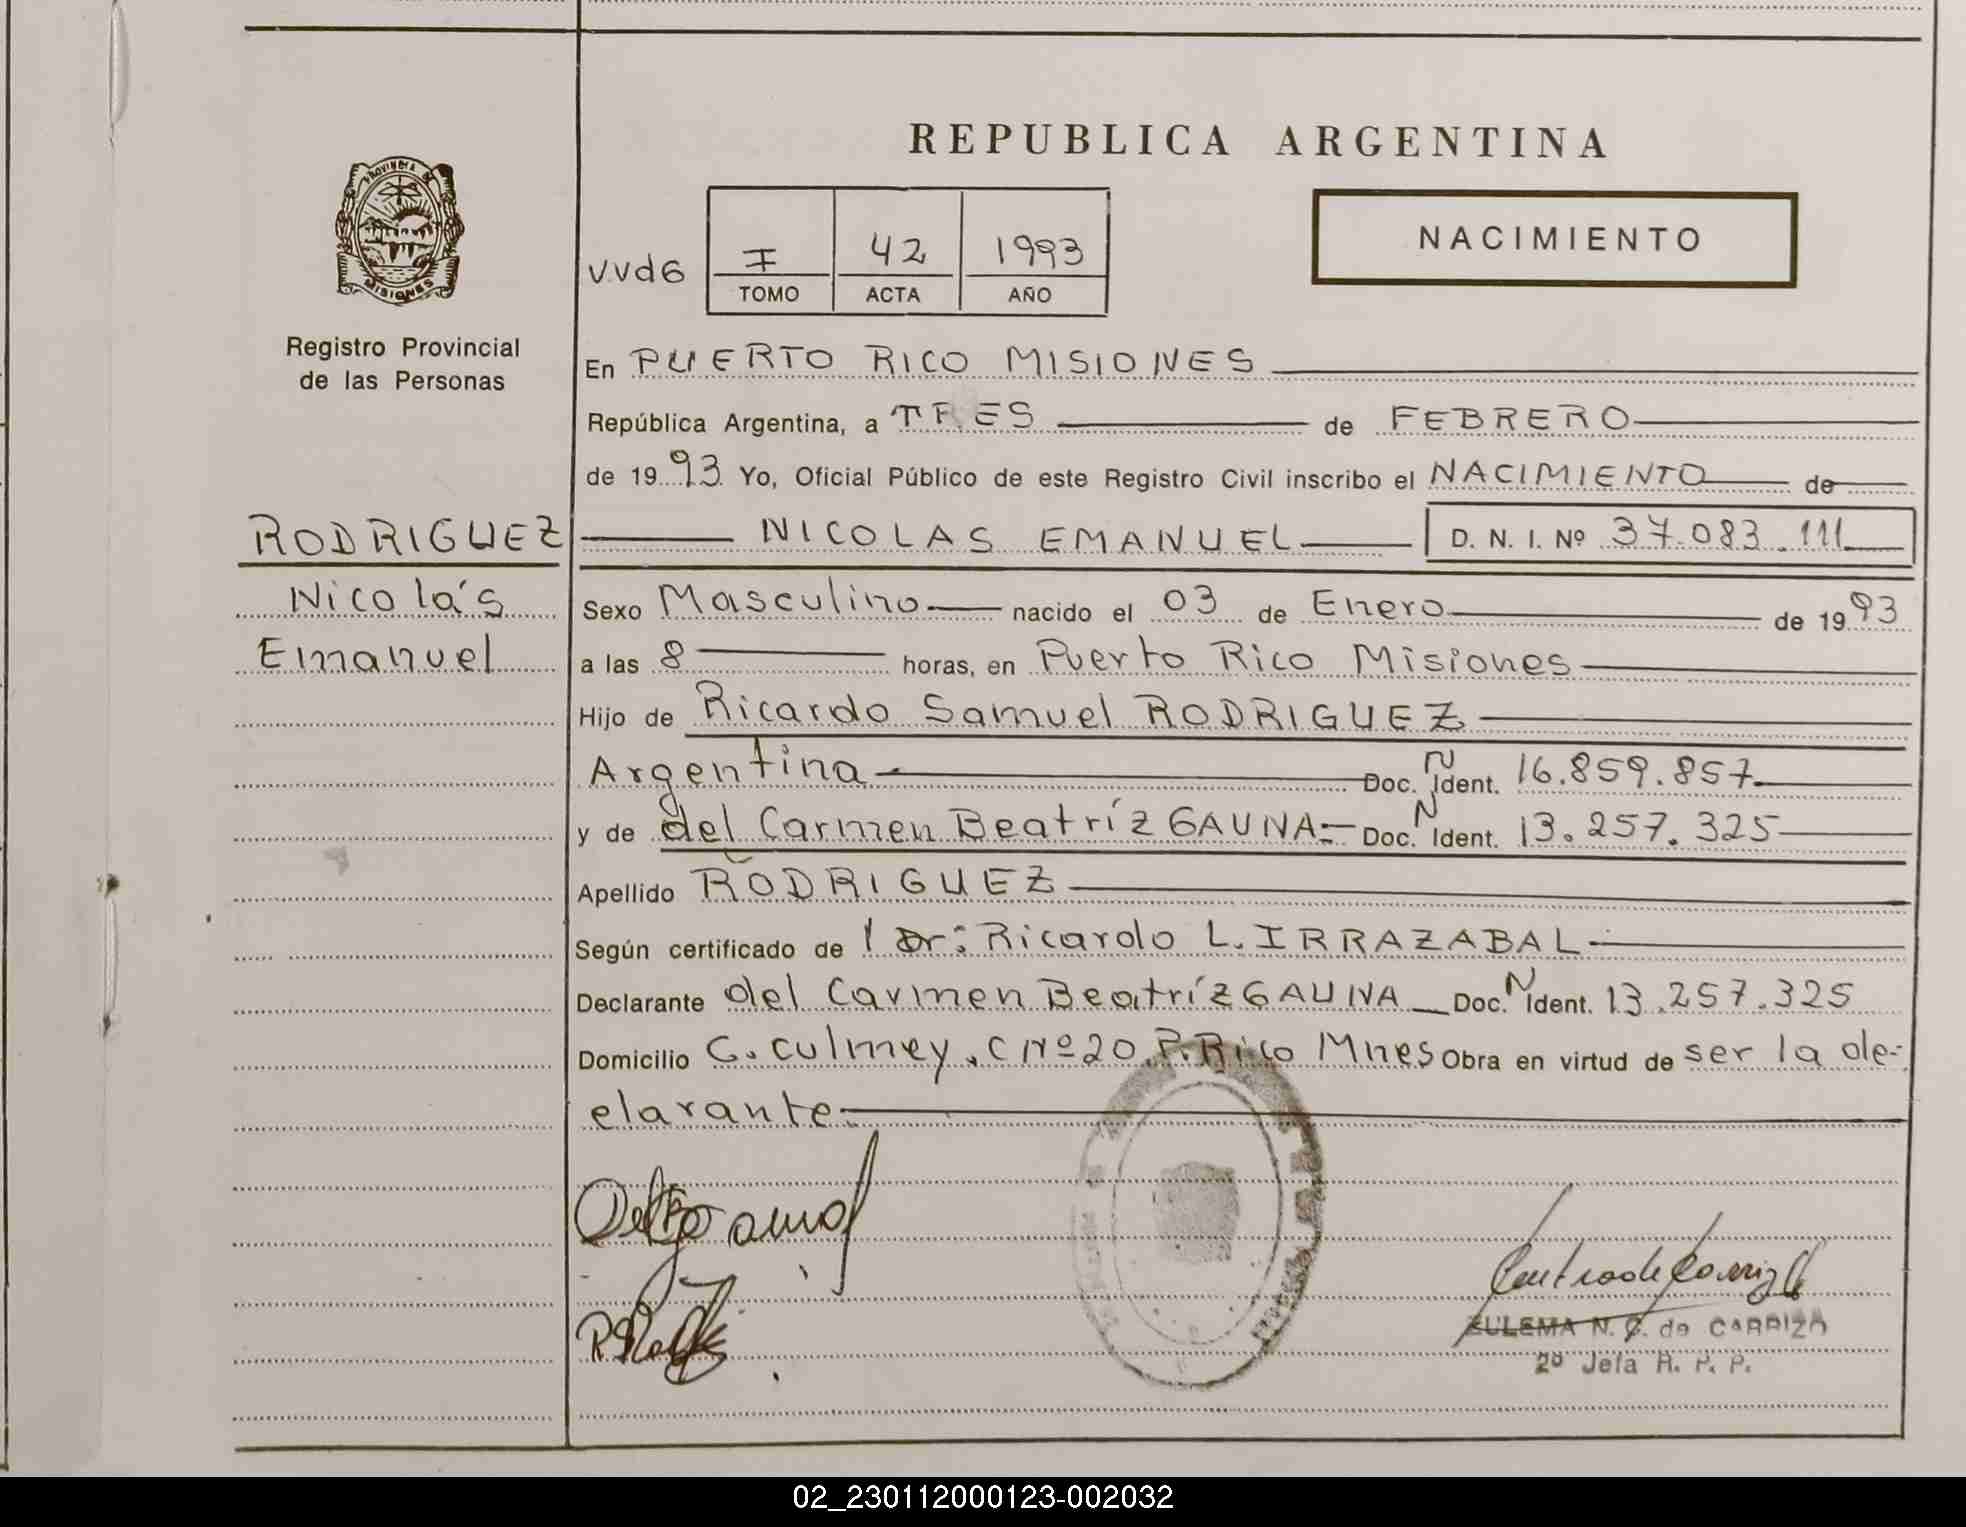 PROVINCIA DE
MISIONES
Registro Provincial
de las Personas
RODRIGUEZ
Nicolás
Emanuel
REPUBLICA ARGENTINA
NACIMIENTO
VVd6
I 42 1993
TOMO ACTA AÑO
En PUERTO RICO MISIONES
República Argentina, a TRES de FEBRERO
de 1993 Yo, Oficial Público de este Registro Civil inscribo el NACIMIENTO de
NICOLAS EMANUEL D. N. I. Nº 37.083.111
Sexo Masculino nacido el 03 de Enero de 1993
a las 8 horas, en Puerto Rico Misiones
Hijo de Ricardo Samuel RODRIGUEZ
Argentina Doc. N Ident. 16.859.857
y de del Carmen Beatríz GAUNA Doc. N Ident. 13.257.325
Apellido RODRIGUEZ
Según certificado de l Dr: Ricardo L. IRRAZABAL
Declarante del Carmen Beatríz GAUNA Doc. N Ident. 13.257.325
Domicilio C. Culmey. C Nº 20 P. Rico Mnes Obra en virtud de ser la de-
clarante
ZULEMA N. C. de CARRIZO
2º Jefa R. P. P.
02_230112000123-002032